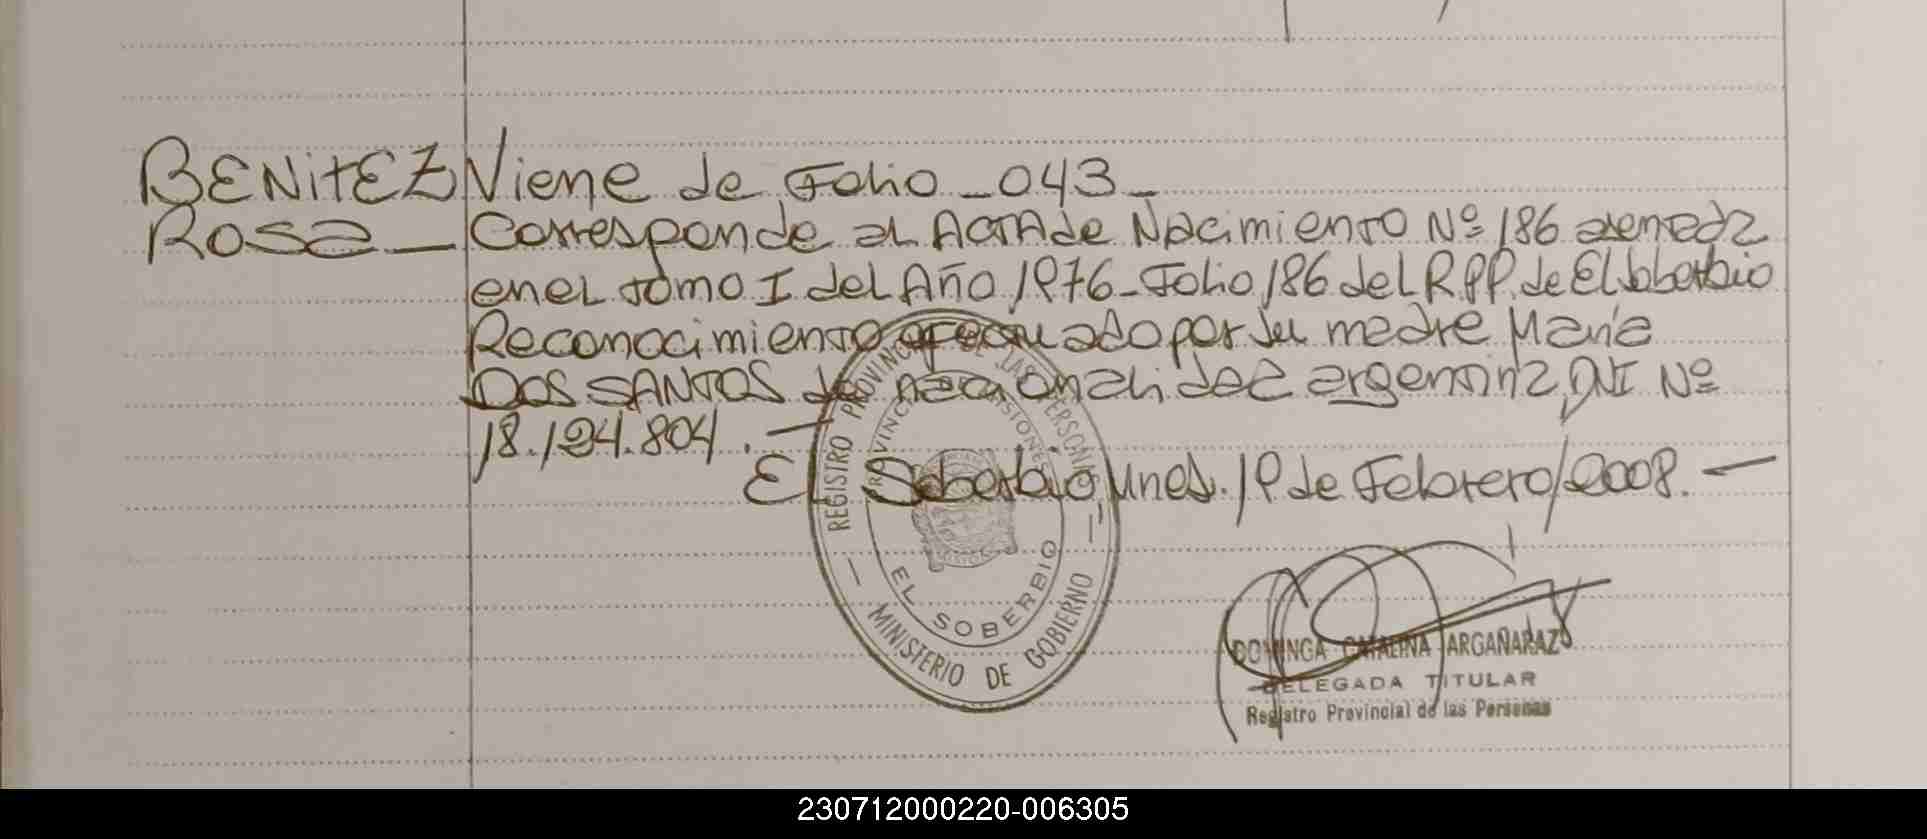 BENITEZ Viene de Folio _ 043 _
Rosa _ Corresponde al Acta de Nacimiento Nº 186 asentada
en el tomo I del Año 1976 - Folio 186 del R.P.P. de El Soberbio
Reconocimiento efectuado por su madre María
DOS SANTOS de nacionalidad argentina, DNI Nº
18.124.804. —
El Soberbio, Mnes. 19 de Febrero/2008. —
REGISTRO PROVINCIAL DE LAS PERSONAS
PROVINCIA MISIONES
EL SOBERBIO
— MINISTERIO DE GOBIERNO —
DOMINGA CATALINA ARGAÑARAZ
DELEGADA TITULAR
Registro Provincial de las Personas
230712000220-006305